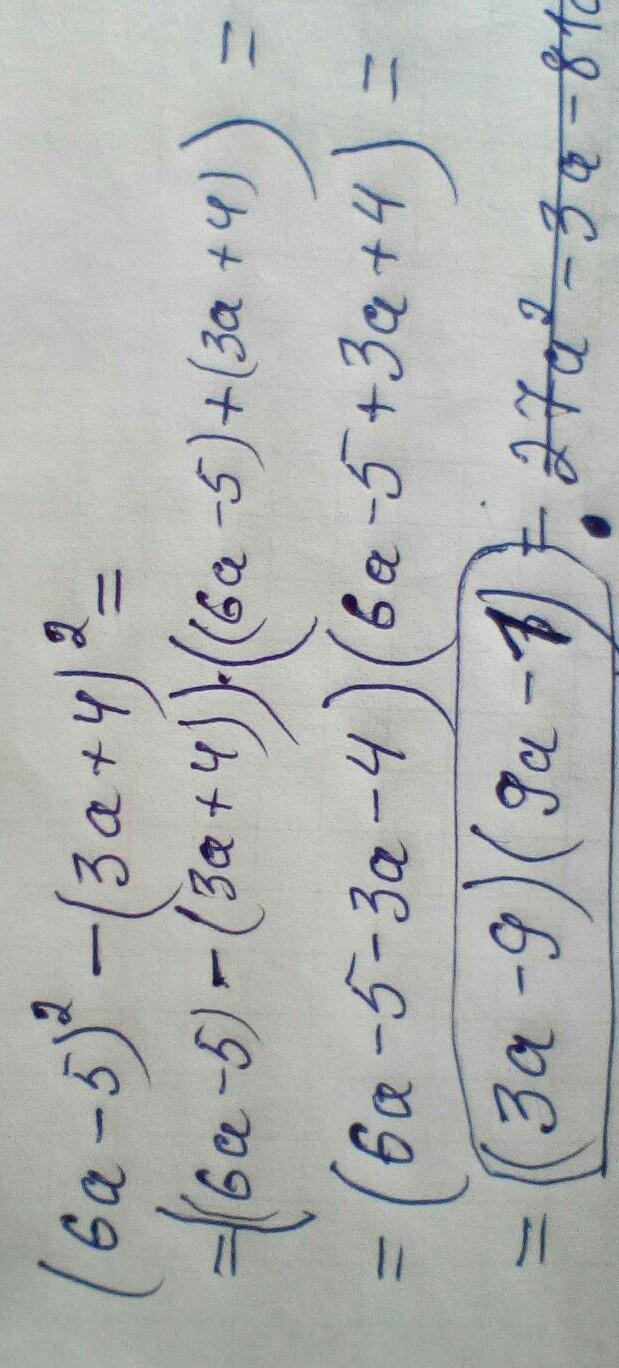 (6a-5)² - (3a+4)² =
= ((6a-5) - (3a+4)) · ((6a-5) + (3a+4)) =
= (6a-5-3a-4)(6a-5+3a+4) =
= (3a-9)(9a-1) = 27a² - 3a - 81a